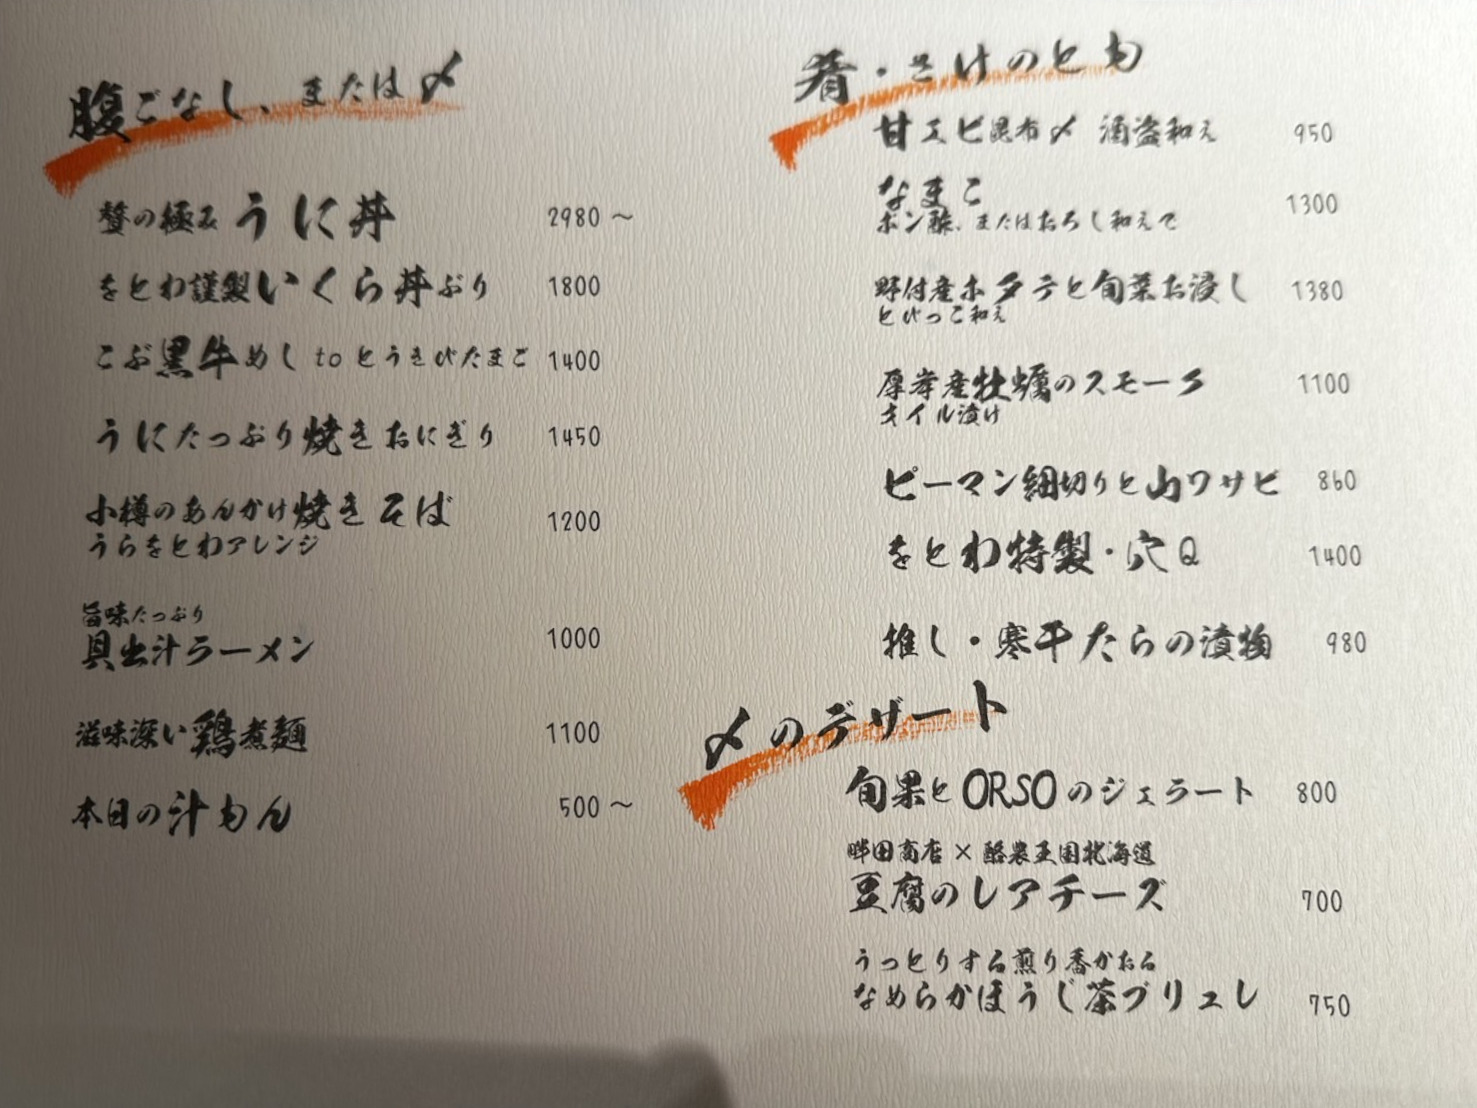 腹ごなし、または〆
贅の極み うに丼 2980～
をとわ謹製いくら丼ぶり 1800
こぶ黒牛めし to とうきびたまご 1400
うにたっぷり焼きおにぎり 1450
小樽のあんかけ焼きそば 1200
うらをとわアレンジ
旨味たっぷり
貝出汁ラーメン 1000
滋味深い鶏煮麺 1100
本日の汁もん 500～
肴・さけのとも
甘エビ昆布〆 酒盗和え 950
なまこ 1300
ポン酢、またはおろし和えで
野付産ホタテと旬菜お浸し 1380
とびっこ和え
厚岸産牡蠣のスモーク 1100
オイル漬け
ピーマン細切りと山ワサビ 860
をとわ特製・穴Q 1400
推し・寒干たらの漬物 980
〆のデザート
旬果とORSOのジェラート 800
田商店 × 酪農王国北海道
豆腐のレアチーズ 700
うっとりする煎り香かおる
なめらかほうじ茶ブリュレ 750